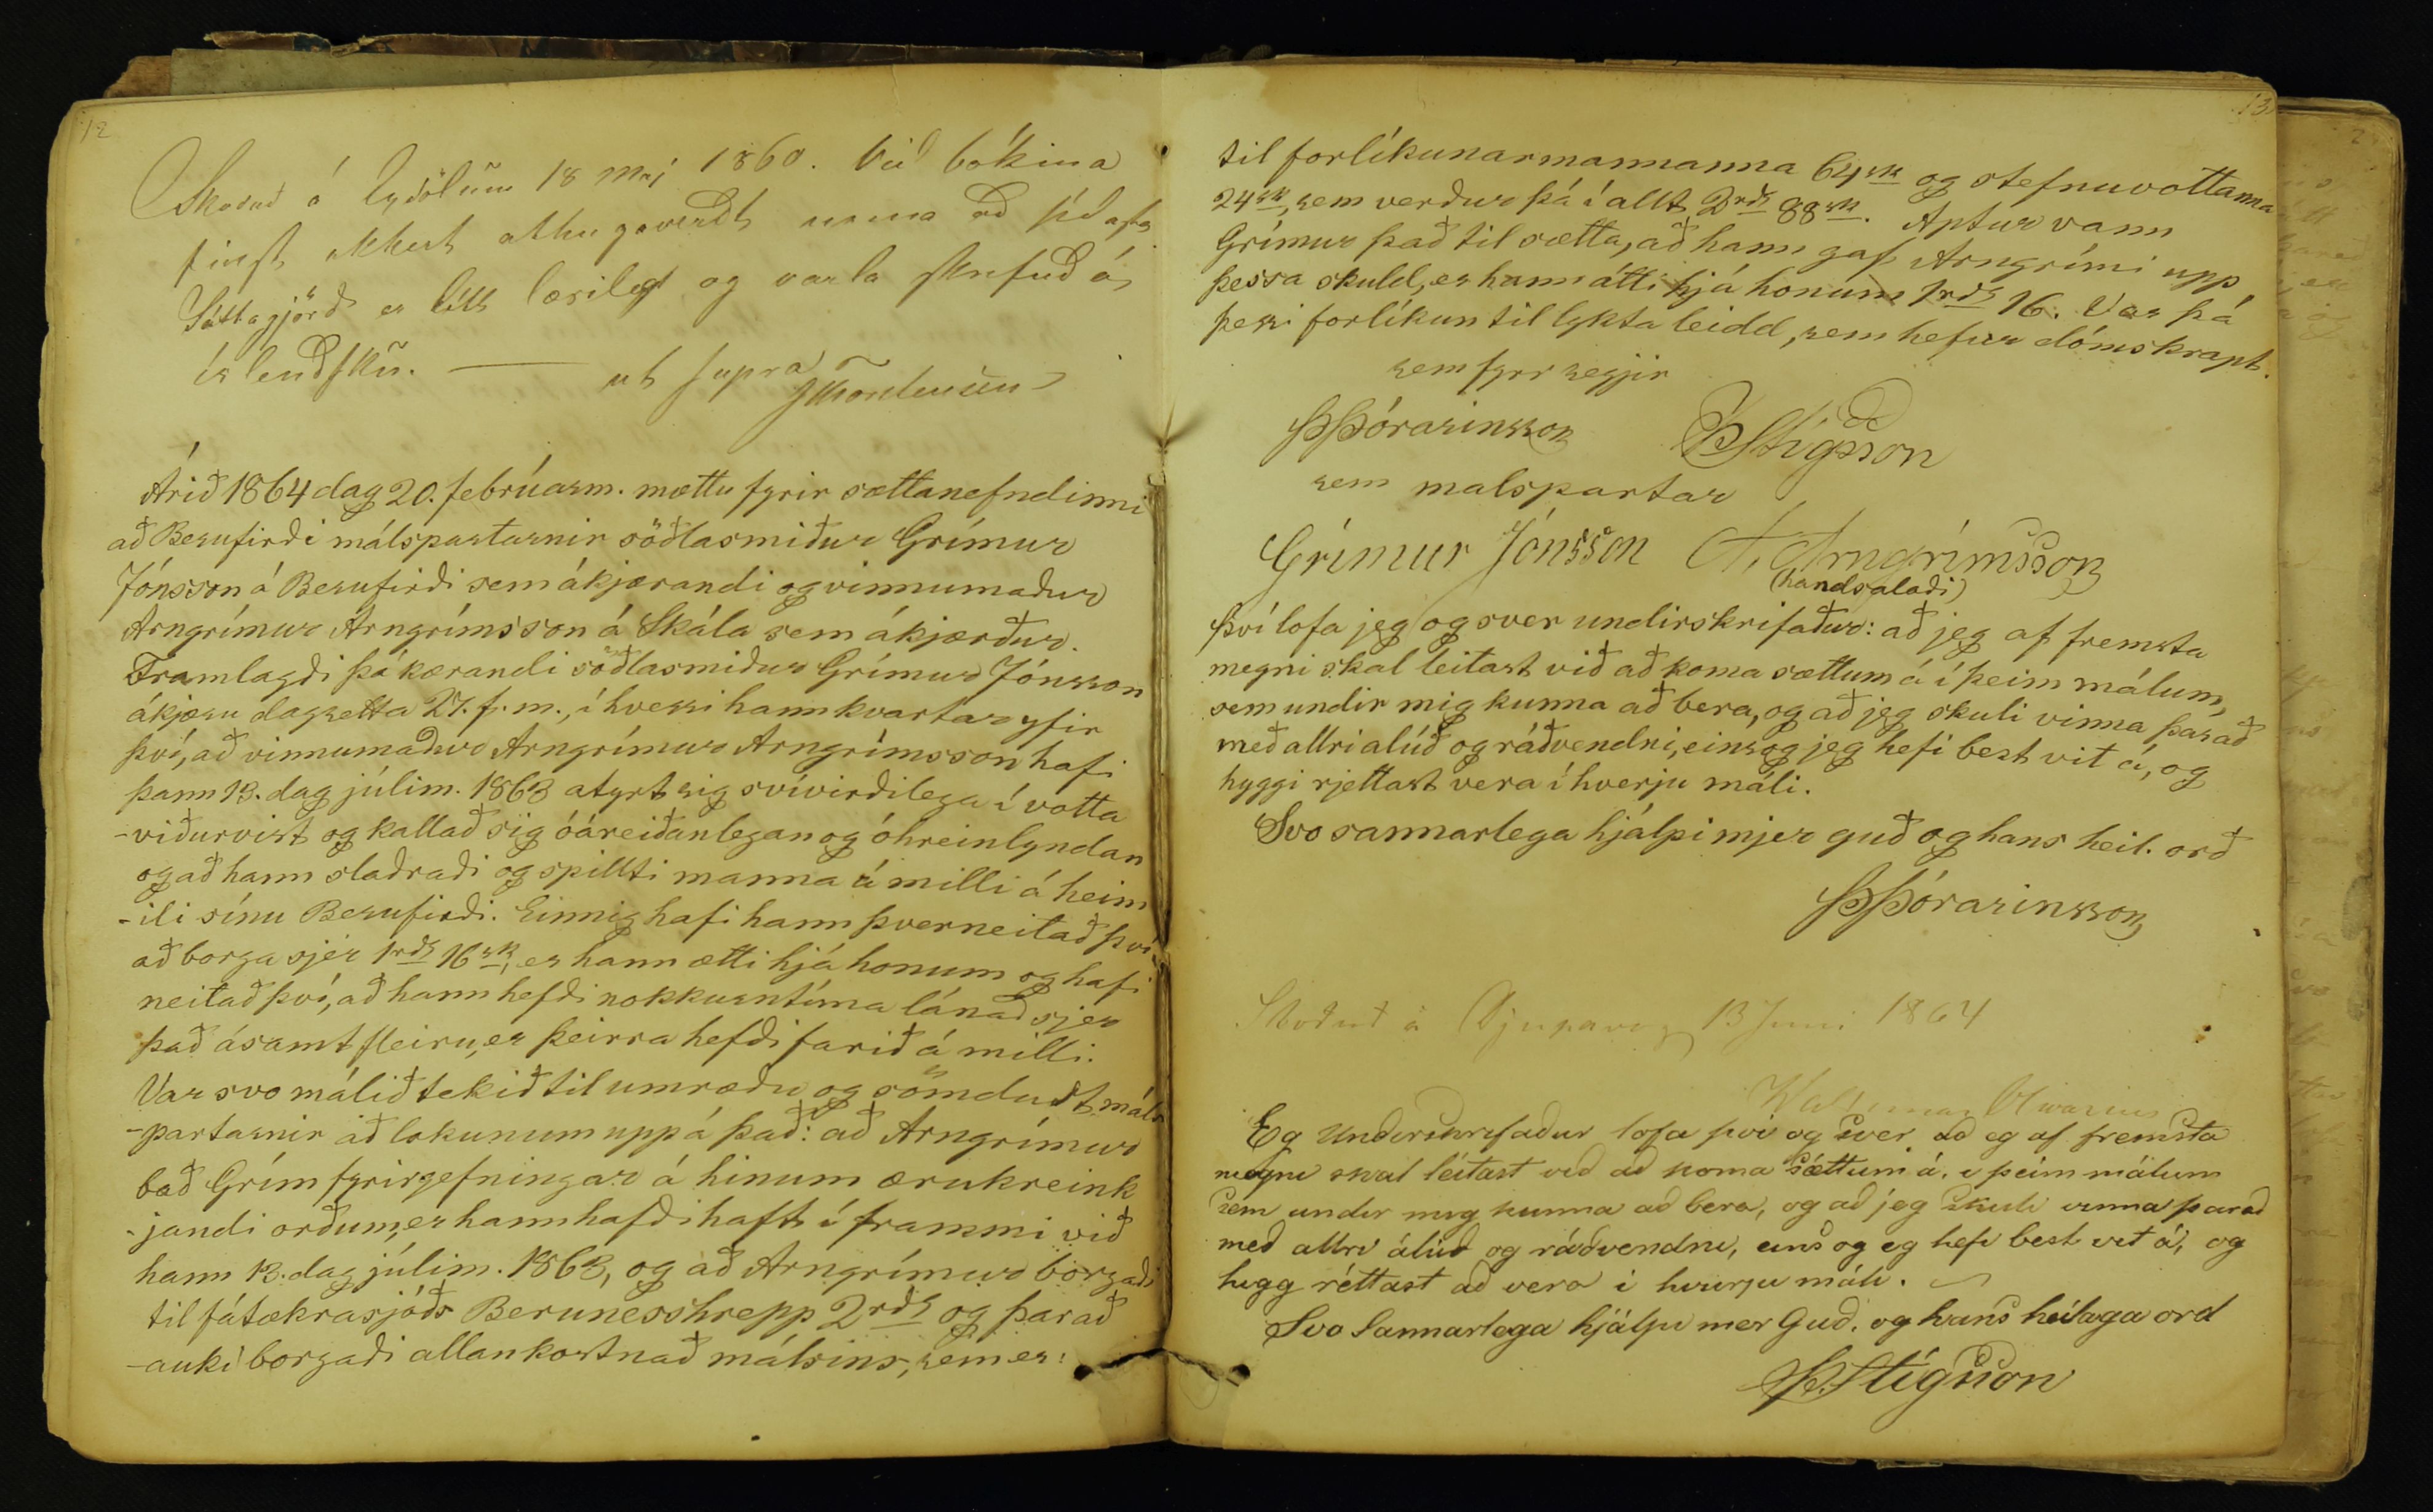 12
Skoðað á Eydölum 18 Maj 1860. Við bókina
finst ekkert athugaverdt nema að síðasta
Sáttagjörð er lítt læsileg og varla skrifuð á
íslendsku. — ut supra
Árið 1864 dag 20. febrúarm. mættu fyrir sættanefndinni
að Berufirði málspartarnir söðlasmiður Grímur
Jónsson á Berufirði sem ákjærandi og vinnumaður
Arngrímur Arngrímsson á Skála sem ákjærður.
Framlagði þá kærandi söðlasmiður Grímur Jónsson
ákjæru dagsetta 27. f. m., í hverri hann kvartar yfir
því, að vinnumaður Arngrímur Arngrímsson hafi
þann 13. dag júlim. 1863 atyrt sig svívirðilega í votta
-viðurvist og kallað sig óáreiðanlegan og óhreinlyndan
og að hann slaðraði og spillti manna á milli á heim
-ili sínu Berufirði. Einnig hafi hann þverneitað því,
að borga sjer 1rd 16sk, er hann ætti hjá honum og hafi
neitað því, að hann hefði nokkurntíma lánað sjer
það ásamt fleiru, er þeirra hefði farið á milli.
Var svo málið tekið til umræðu og sömdust máls
-partarnir að lokunum uppá það: að Arngrímur
bað Grím fyrirgefningar á hinum ærukreink
-jandi orðum, er hann hafði haft í frammi við
hann 13. dag júlim. 1863, og að Arngrímur borgaði
til fátækrasjóðs Berunesshrepp 2rd og þar að
-auki borgaði allan kostnað málsins, sem er:
13
til forlíkunarmannanna 64sk og stefnuvottanna
24sk, sem verður þá í allt 2rd 88sk. Aptur vann
Grímur það til sætta, að hann gaf Arngrími upp
þessa skuld, er hann átti hjá honum 1rd 16. Var þá
þessi forlíkun til lykta leidd, sem hefur dómskrapt.
sem fyrr segjir
ÞÞórarinsson ÞStígsson
sem malspartar
Grímur Jónsson A. Arngrímsson
(handsalaði)
Því lofa jeg og sver undirskrifaður: að jeg af fremsta
megni skal leitast við að koma sættum á í þeim málum,
sem undir mig kunna að bera, og að jeg skuli vinna þar að
með allri alúð og ráðvendni, eins og jeg hefi best vit á, og
hyggi rjettast vera í hverju máli.
Svo sannarlega hjálpi mjer guð og hans heil. orð
ÞÞórarinsson
Skoðað á Djupavog 13 Juni 1864
Waldemar Olivarius
Eg Undirskrifaður lofa því og sver að eg af fremsta
megni skal leitast við að koma sættum á, í þeim málum
sem undir mig kunna að bera, og að jeg skuli vinna þarað
með allri álúð og ráðvendni, eins og eg hefi best vit á, og
hugg réttast að vera í hverju máli.
Svo Sannarlega hjálpi mer Guð, og hans heilaga ord
Þ.Stígsson